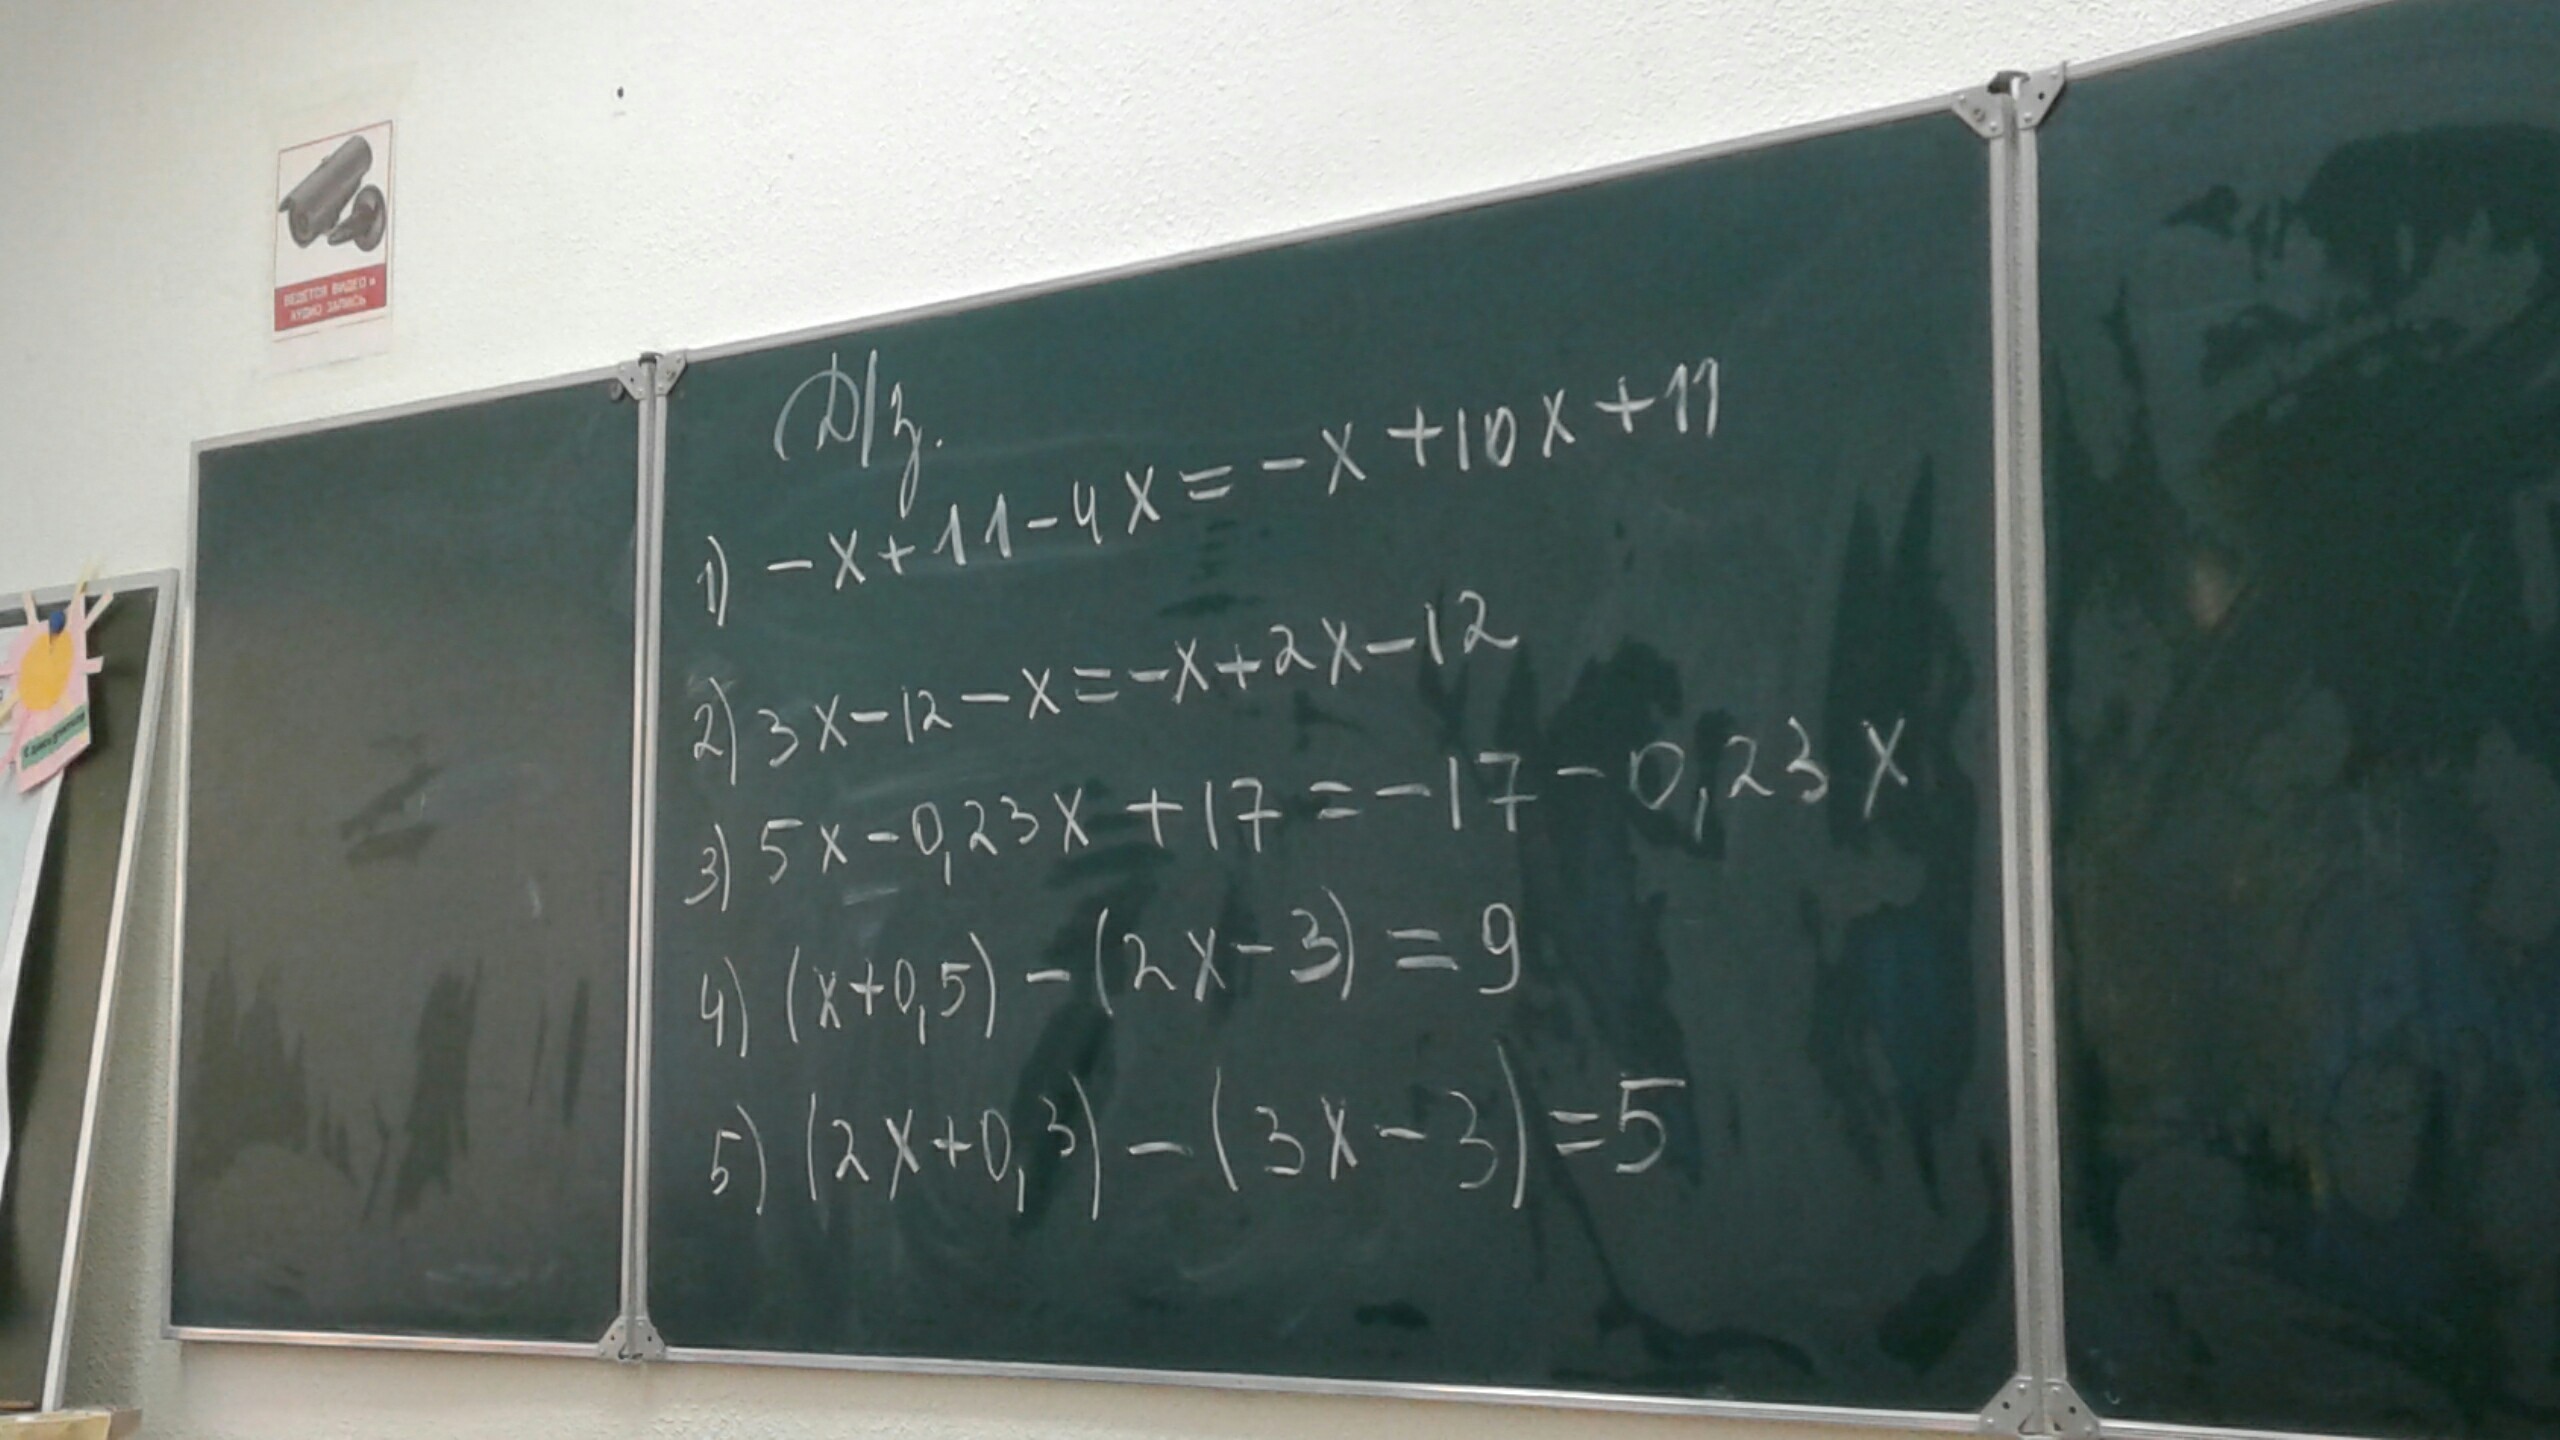 ВЕДЕТСЯ ВИДЕО и
АУДИО ЗАПИСЬ
Д/з.
1) -x+11-4x=-x+10x+11
2) 3x-12-x=-x+2x-12
3) 5x-0,23x+17=-17-0,23x
4) (x+0,5)-(2x-3)=9
5) (2x+0,3)-(3x-3)=5